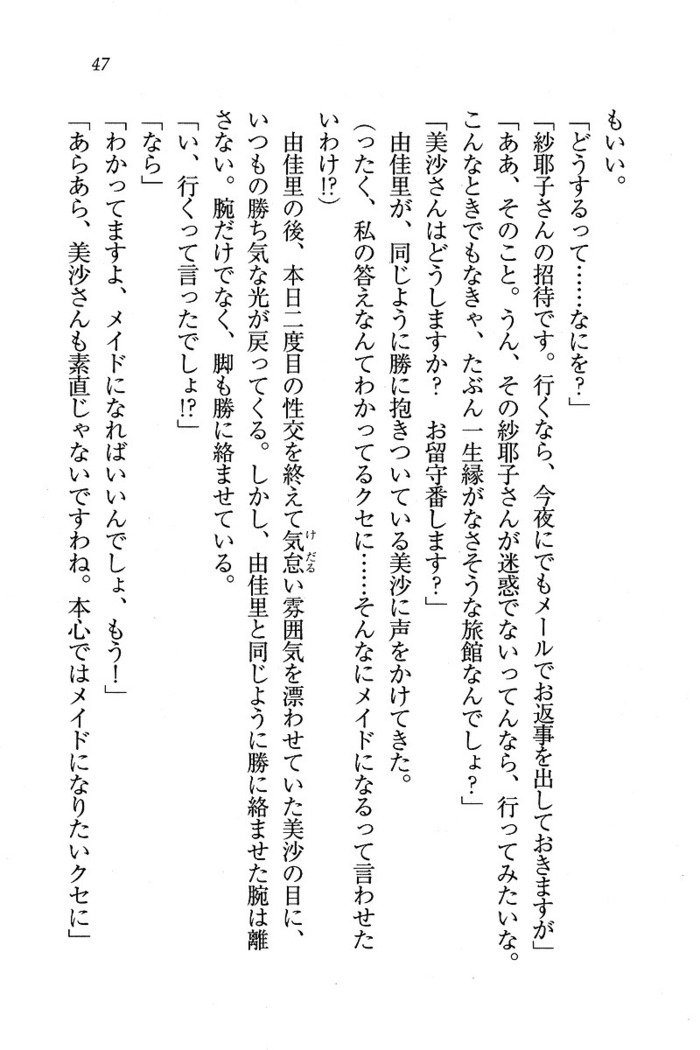 47
もいい。
「どうするって……なにを?」
「紗耶子さんの招待です。行くなら、今夜にでもメールでお返事を出しておきますが」
「ああ、そのこと。うん、その紗耶子さんが迷惑でないってんなら、行ってみたいな。
こんなときでもなきゃ、たぶん一生縁がなさそうな旅館なんでしょ?」
「美沙さんはどうしますか? お留守番します?」
由佳里が、同じように勝に抱きついている美沙に声をかけてきた。
(ったく、私の答えなんてわかってるクセに……そんなにメイドになるって言わせた
いわけ!?)
由佳里の後、本日二度目の性交を終えて気怠い雰囲気を漂わせていた美沙の目に、
けだる
いつもの勝ち気な光が戻ってくる。しかし、由佳里と同じように勝に絡ませた腕は離
さない。腕だけでなく、脚も勝に絡ませている。
「い、行くって言ったでしょ!?」
「なら」
「わかってますよ、メイドになればいいんでしょ、もう!」
「あらあら、美沙さんも素直じゃないですわね。本心ではメイドになりたいクセに」